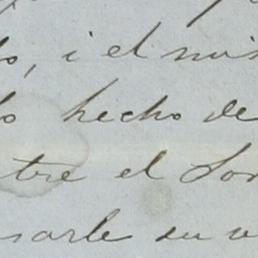 lo, i el mis
lo hecho de
tre el Sor
sarle su v